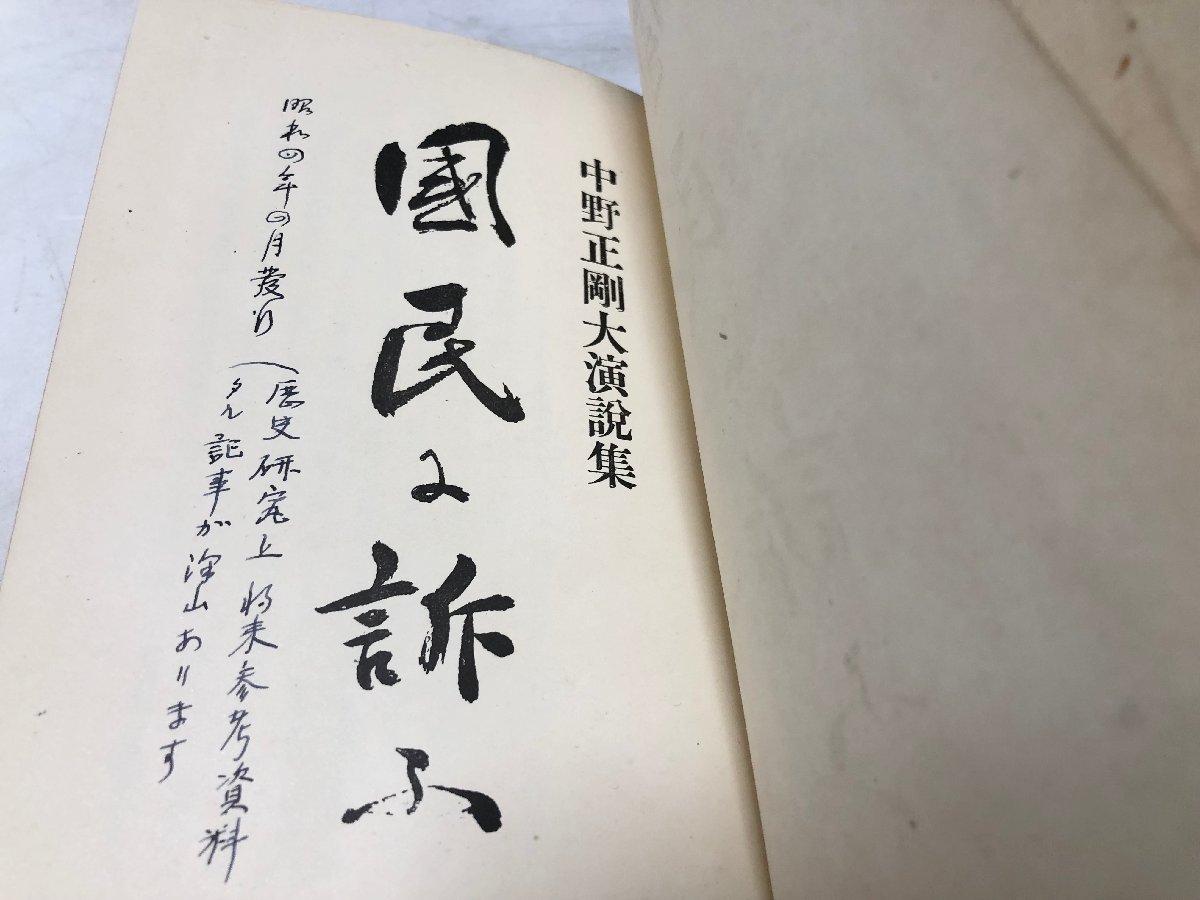 中野正剛大演說集
國民に訴ふ
昭和四年四月發行
(歴史研究上将来参考資料
タル記事が沢山あります